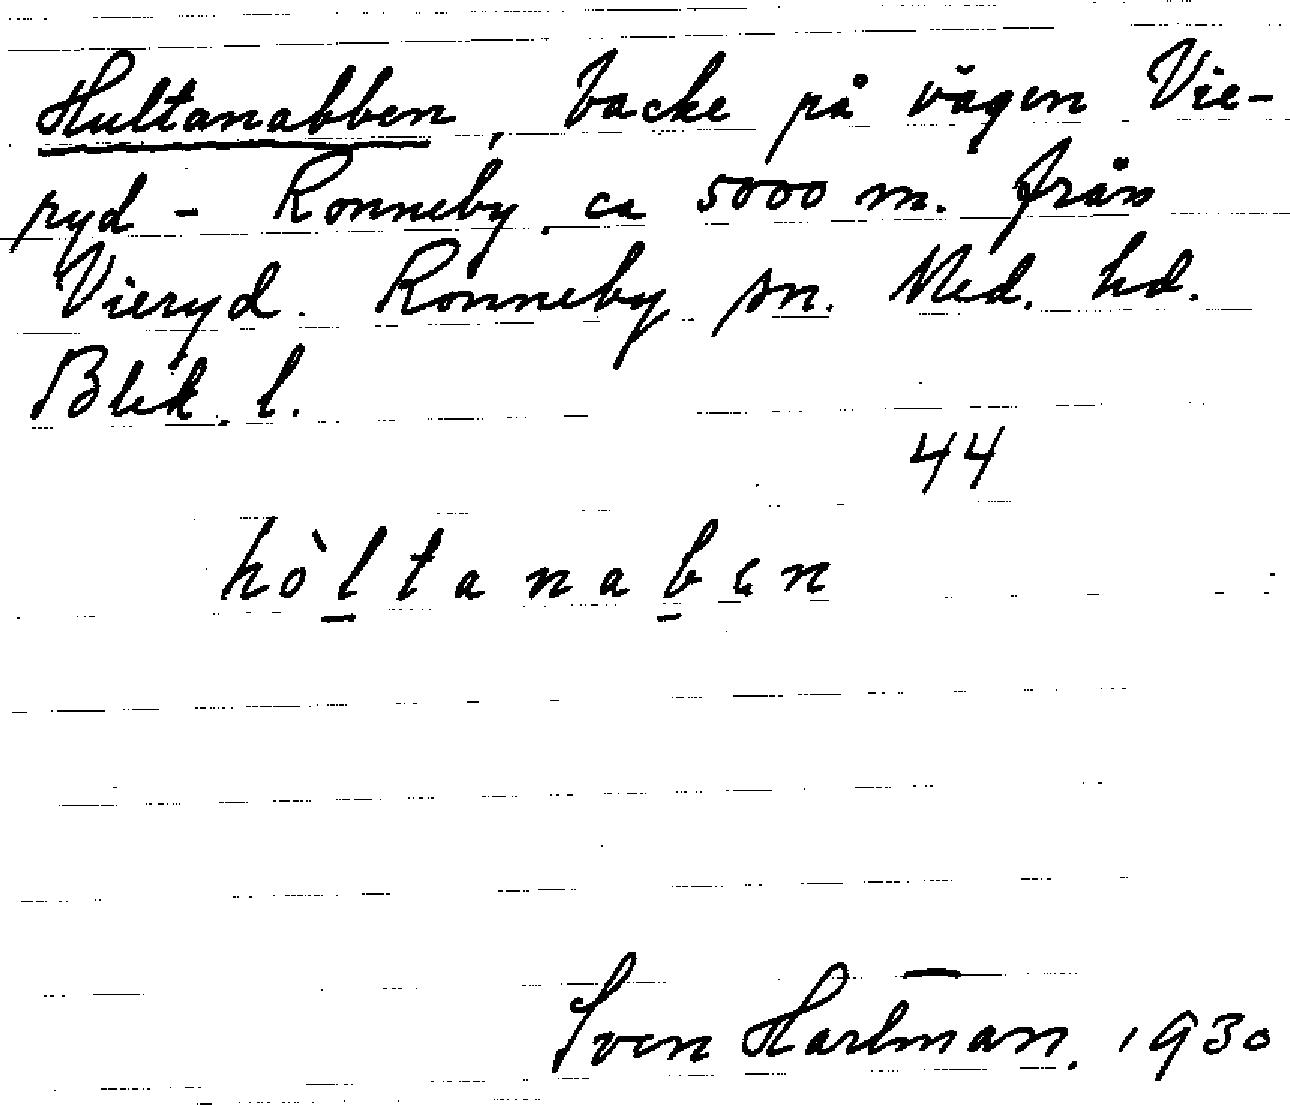 Hultanabben, backe på vägen Vie-
ryd - Ronneby, ca 5000 m. från
Vieryd. Ronneby sn. Med. hd.
Blek. l.
44
hòl̲tanab̲ɛn
Sven Hartman. 1930